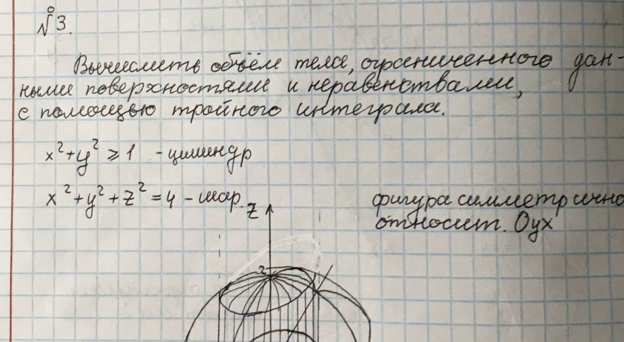 №3.
Вычислить объём тела, ограниченного дан-
ными поверхностями и неравенствами,
с помощью тройного интеграла.
x²+y² ⩾ 1 - цилиндр
x²+y²+z² = 4 - шар.
z
фигура симметрично
относит. Oyx
2